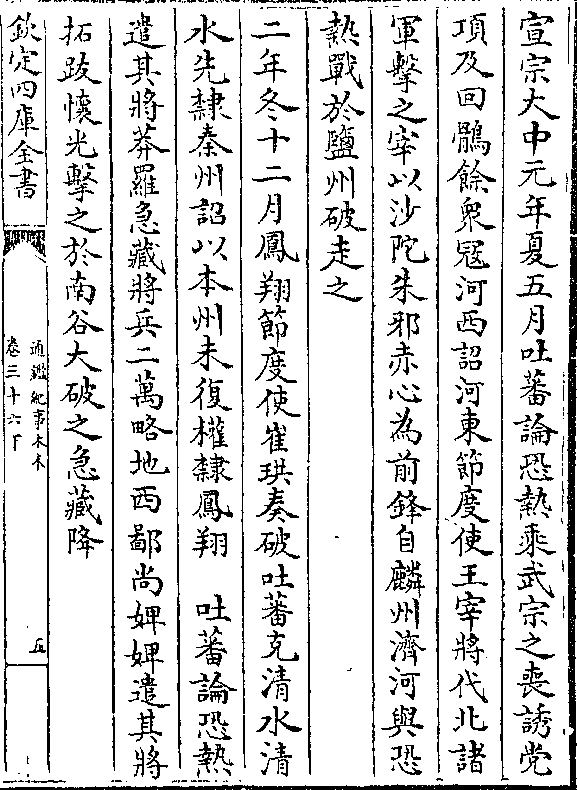 宣宗大中元年夏五月吐蕃論恐熱乘武宗之喪誘党
項及回鶻餘衆冦河西詔河東節度使王宰將代北諸
軍擊之宰以沙陀朱邪赤心為前鋒自麟州濟河與恐
熱戰於鹽州破走之
二年冬十二月鳳翔節度使崔珙奏破吐蕃克清水清
水先隸秦州詔以本州未復權隸鳳翔　吐蕃論恐熱
遣其將莽羅急藏將兵二萬略地西鄙尚婢婢遣其將
拓跋懷光擊之於南谷大破之急藏降
欽定四庫全書
通鑑紀事本末
卷三十六下
五